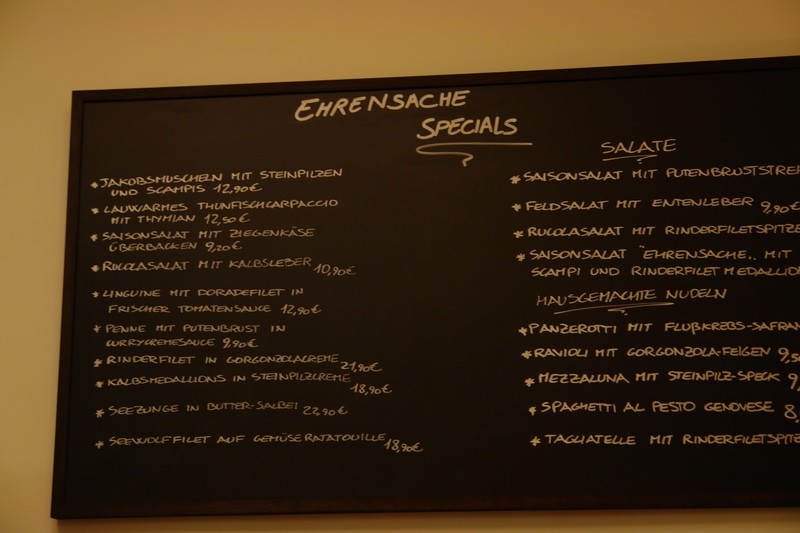 EHRENSACHE
SPECIALS
* JAKOBSMUSCHELN MIT STEINPILZEN
UND SCAMPIS 12,90€
* LAUWARMES THUNFISCHCARPACCIO
MIT THYMIAN 12,50€
* SAISONSALAT MIT ZIEGENKÄSE
ÜBERBACKEN 9,20€
* RUCOLASALAT MIT KALBSLEBER 10,90€
* LINGUINE MIT DORADEFILET IN
FRISCHER TOMATENSAUCE 12,90€
* PENNE MIT PUTENBRUST IN
CURRYCREMESAUCE 9,90€
* RINDERFILET IN GORGONZOLACREME 21,90€
* KALBSMEDALLIONS IN STEINPILZCREME 18,90€
* SEEZUNGE IN BUTTER-SALBEI 22,90€
* SEEWOLFFILET AUF GEMÜSERATATOUILLE 18,90€
SALATE
* SAISONSALAT MIT PUTENBRUSTSTREI
* FELDSALAT MIT ENTENLEBER 9,90€
* RUCOLASALAT MIT RINDERFILETSPITZE
* SAISONSALAT "EHRENSACHE" MIT
SCAMPI UND RINDERFILETMEDALLIO
HAUSGEMACHTE NUDELN
* PANZEROTTI MIT FLUßKREBS-SAFRAN
* RAVIOLI MIT GORGONZOLA-FEIGEN 9,5
* MEZZALUNA MIT STEINPILZ-SPECK 9,
* SPAGHETTI AL PESTO GENOVESE 8,
* TAGLIATELLE MIT RINDERFILETSPITZ